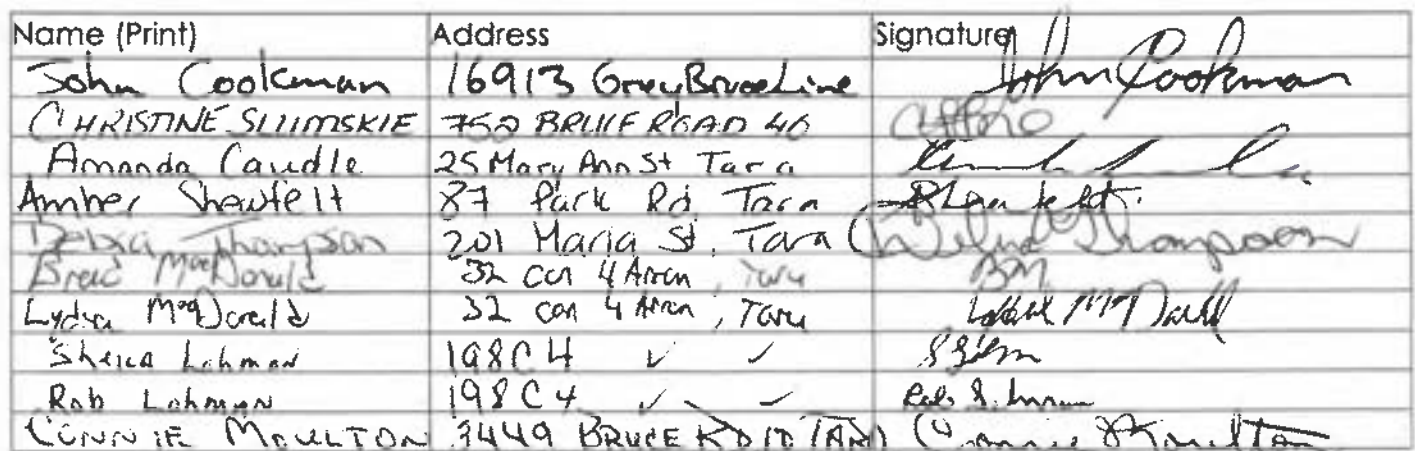 Name (Print) Address Signature
John Cookman 16913 Grey Bruce Line John Cookman
CHRISTINE SLUMSKIE 750 BRUCE ROAD 40
Amanda Caudle 25 Mary Ann St Tara
Amber Shawfelt 87 Park Rd, Tara
Debra Thompson 201 Maria St, Tara Debra Thompson
Brad MacDonald 32 con 4 Arran, Tara BM
Lydia MacDonald 32 con 4 Arran, Tara
Sheila Lohman 198 C 4 ✓ ✓
Rob Lohman 198 C 4 ✓ ✓
CONNIE MOULTON 3449 BRUCE RD 10 TARA Connie Moulton